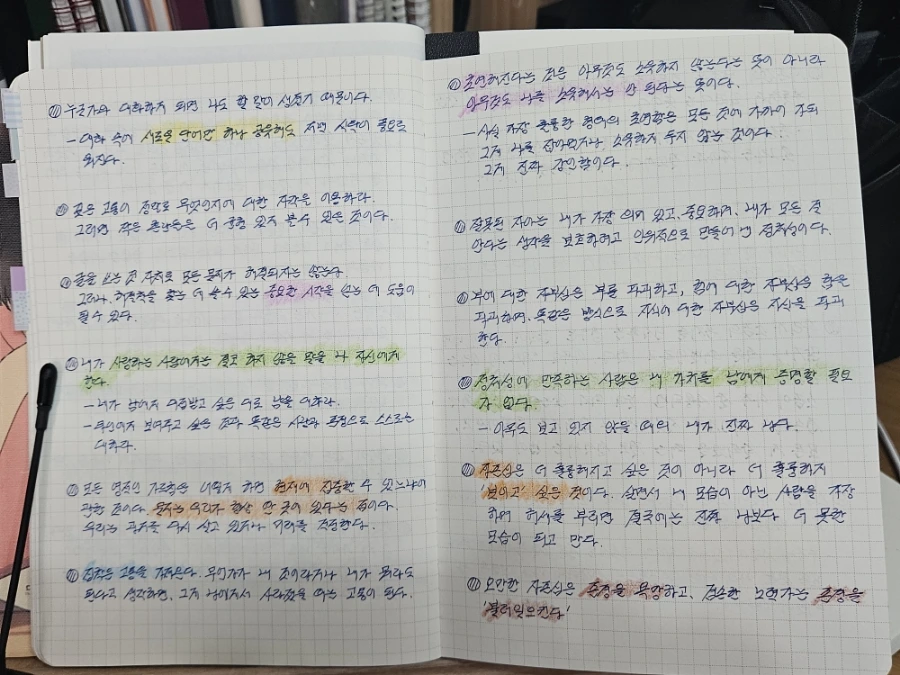 누군가와 대화하게 되면 나도 할 말이 생기기 때문이다.
- 대화 속에 서로를 단어만 하나 공유해도 저번 시작이 풍요로
워진다.
깊은 고통이 정말로 무엇인지에 대한 자각은 이용하라.
그러면 작은 혼란들은 더 균형 있게 볼 수 있을 것이다.
글을 쓰는 것 자체로 모든 문제가 해결되지는 않는다.
그러나, 해결책을 찾는 데 쓸 수 있는 중요한 시작을 하는 데 도움이
될 수 있다.
내가 사랑하는 사람에게는 결코 하지 않을 말을 나 자신에게
한다.
- 내가 남에게 대접받고 싶은 대로 남을 대하라.
- 타인에게 보여주고 싶은 것과 똑같은 시간과 특징으로 스스로를
대하라.
모든 영적인 가르침은 어떻게 하면 현재에 집중할 수 있느냐에
관한 것이다. 문제는 우리가 항상 딴 곳에 있다는 것이다.
우리는 과거를 다시 살고 있거나 미래를 걱정한다.
집착은 고통을 가져온다. 무언가가 내 것이라거나 내가 뭐라도
된다고 생각하면, 그게 남에게서 사라졌을 때는 고통이 된다.
초연해지다는 것은 아무것도 소유하지 않는다는 뜻이 아니라
아무것도 나를 소유해서는 안 된다는 뜻이다.
- 사실 가장 훌륭한 형태의 초연함은 모든 것에 가까이 가되
그게 나를 잡아먹거나, 소유하게 두지 않는 것이다.
그게 진짜 강인함이다.
잘못된 자아는 내가 가장 의미 있고, 중요하며, 내가 모든 걸
안다는 생각을 보호하려고 인위적으로 만들어 낸 정체성이다.
부에 대한 자부심은 부를 파괴하고, 힘에 대한 자부심은 힘을
파괴하며, 똑같은 방식으로 지식에 대한 자부심은 지식을 파괴
한다.
정체성에 만족하는 사람은 내 가치를 남에게 증명할 필요
가 없다.
- 아무도 보고 있지 않을 때의 내가 진짜 나다.
자존심은 더 훌륭해지고 싶은 것이 아니라 더 훌륭하게
보이고 싶은 것이다. 살면서 내 모습이 아닌 사람을 가장
하며 허세를 부리면 결국에는 진짜 나보다 더 못한
모습이 되고 만다.
오만한 자존심은 존경을 욕망하고, 겸손한 노력가는 존경을
'불러일으킨다'